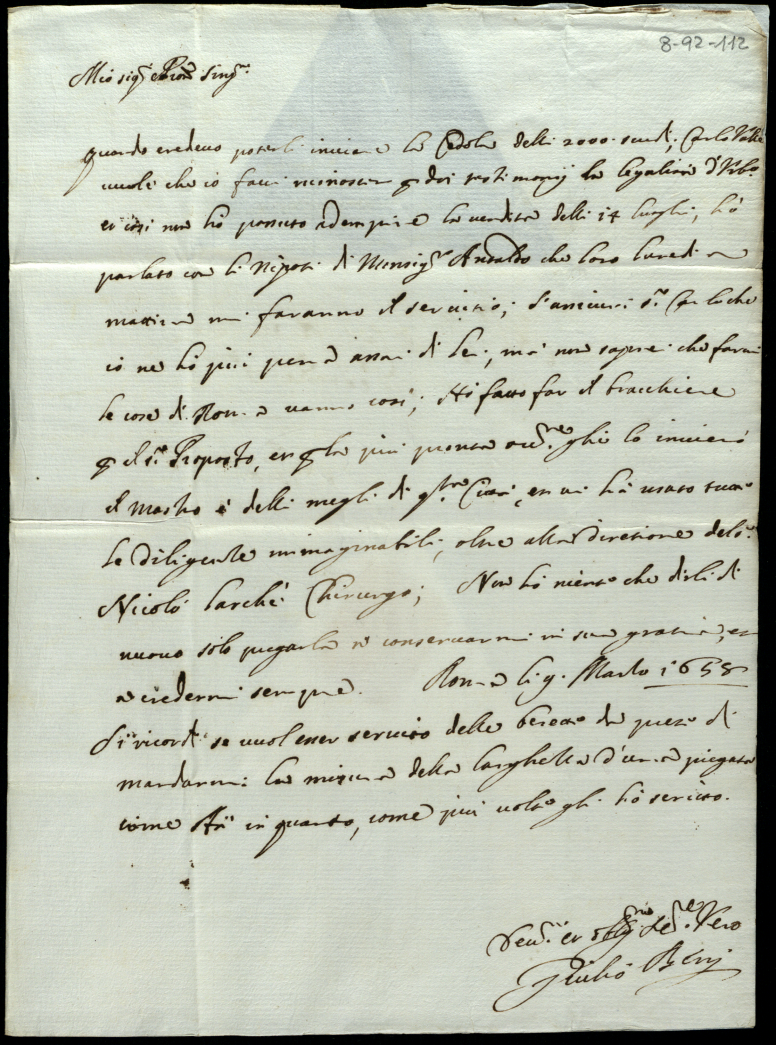 8-92-112
Mio sig.r Pron Sing.re
quando credevo poterli inviare la Cedola delli 2000 scudi, Carlo
vuole che io facci riconoscer p doi testimonij la legalità d'Urb.o
et così non hò possuto adempire la vendita delli 14 luoghi, hò
parlato con li Nipoti di Monsig.r Ansaldo che loro lunedi a
mattina mi faranno il servitio; s'assicuri s.r Carlo che
io ne hò più pena assai di lei, mà non saprei che farmi
le cose di Roma vanno così; Hò fatto far il bracchiere
p il s.r Proposto, et p la più pronta glie lo invierò
il Mastro è delli megli di q.sta Città, et vi hà usato tutte
le diligenze immaginabili, oltre alla diretione del s.r
Nicolò Larchè Chirurgo; Non hò niente che dirli di
nuovo solo pregarla à conservarmi in sua gratia, et
à credermi sempre. Roma li 9. Marzo 1658
Si ricordi se vuol esser servito delle berette da prete di
mandarmi la misura della larghezza d'una piegata
come in quarto, come più volte gli hò scritto.
Dev.mo et oblig.mo Se.re Vero
Giulio